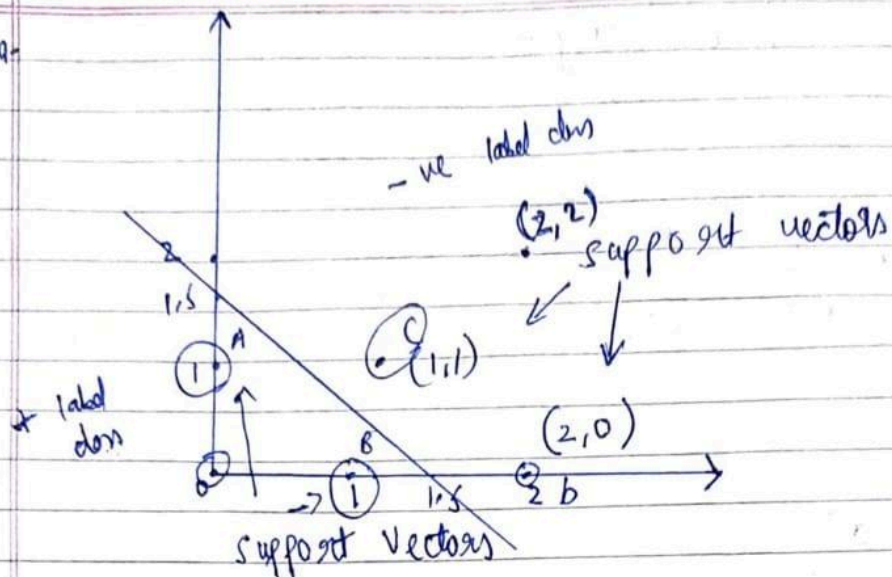 - ve label class
(2,2)
support vectors
2
1.5
A
1
C
(1,1)
+ label
class
B
(2,0)
0
1
1.5
2
b
support vectors